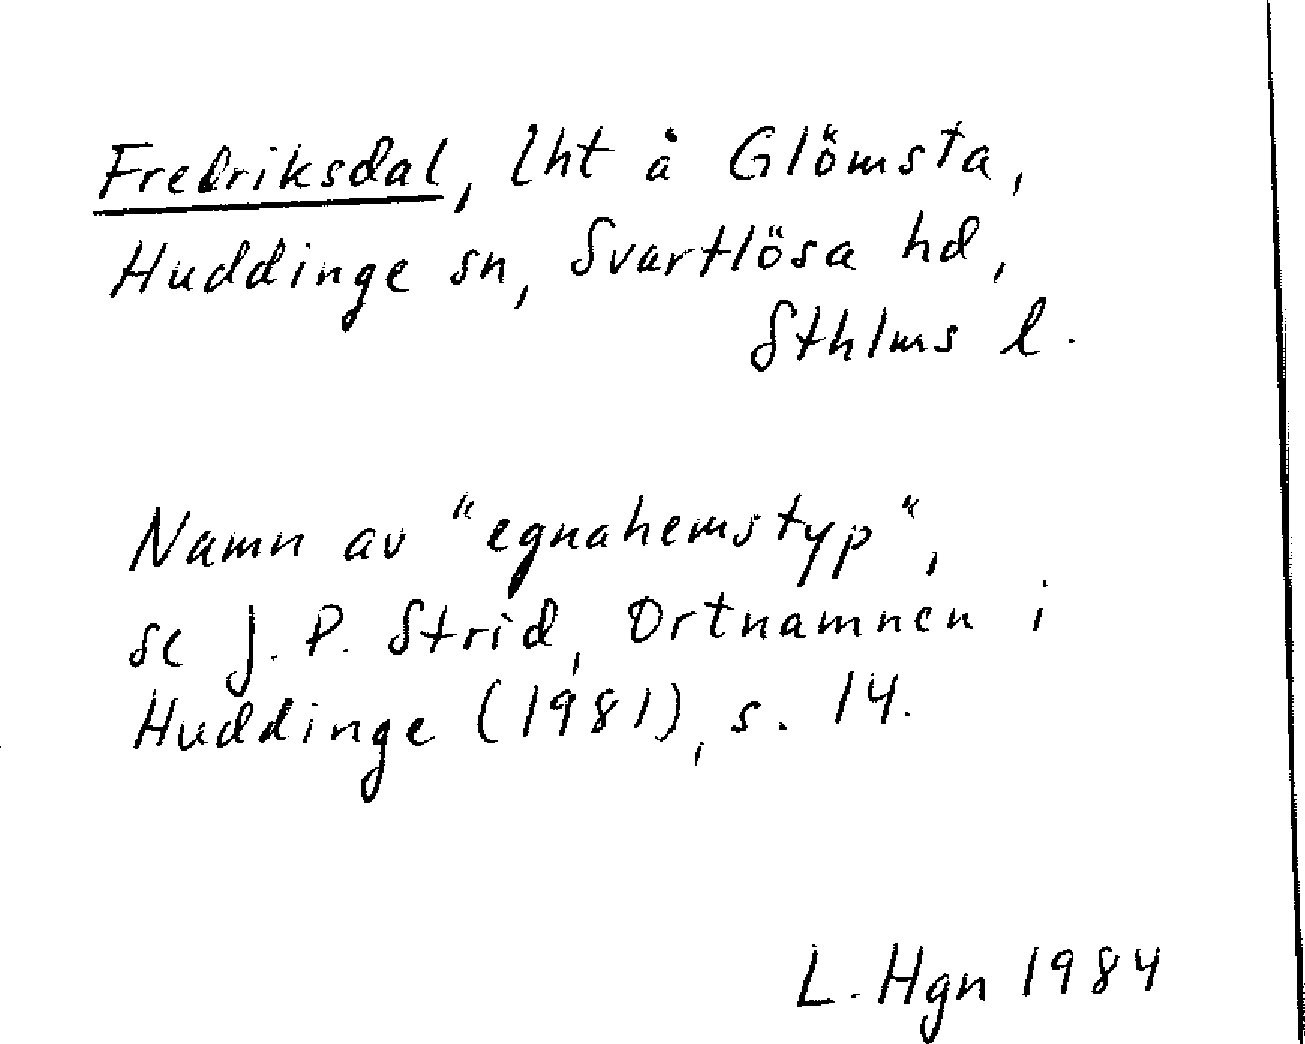 Fredriksdal, lht å Glömsta,
Huddinge sn, Svartlösa hd,
Sthlms l.
Namn av "egnahemstyp",
se J. P. Strid, Ortnamnen i
Huddinge (1981), s. 14.
L. Hgn 1984